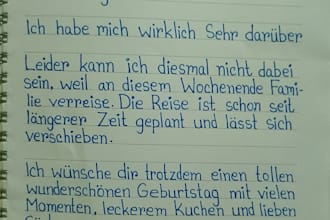 Ich habe mich wirklich Sehr darüber
Leider kann ich diesmal nicht dabei
sein, weil an diesem Wochenende Fami-
lie verreise. Die Reise ist schon seit
längerer Zeit geplant und lässt sich
verschieben.
Ich wünsche dir trotzdem einen tollen
wunderschönen Geburtstag mit vielen
Momenten, leckerem Kuchen und lieben